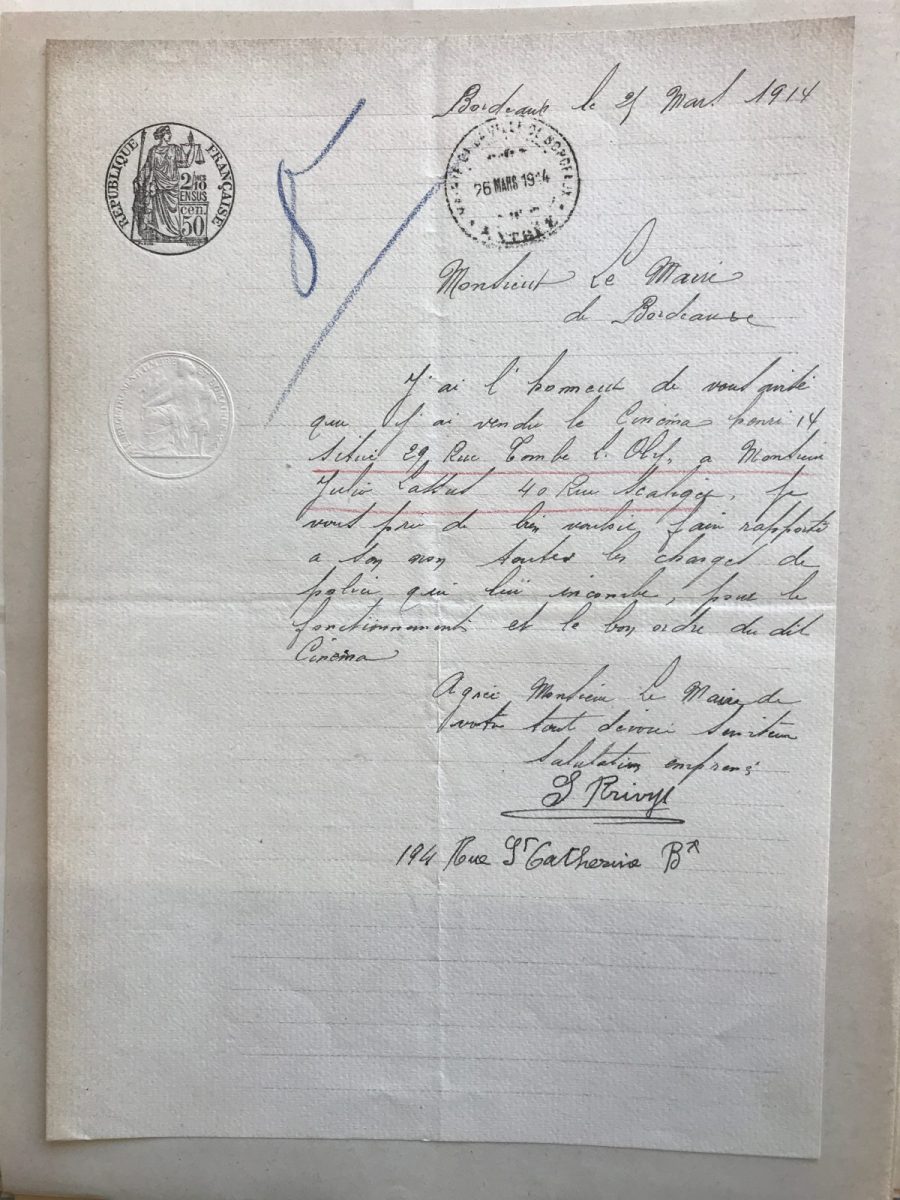 Bordeaux le 25 Mars 1914
RÉPUBLIQUE FRANÇAISE
2/10
EN SUS
50 cen.
MAIRIE DE LA VILLE DE BORDEAUX
26 MARS 1914
Monsieur Le Maire
de Bordeaux
J'ai l'honneur de vous
que j'ai vendu le Cinéma henri 14
situé 29 Rue Tombe L. Oly, a Monsieur
Julio 40 Rue Scaliger, Je
vous prie de bien vouloir faire rapporté
a son nom toutes les charges de
police qui lui incombe, pour le
fonctionnement et le bon ordre du dit
Cinéma
Agréé Monsieur Le Maire de
votre tout dévoué serviteur
salutation empress
194 Rue St Catherine Bx